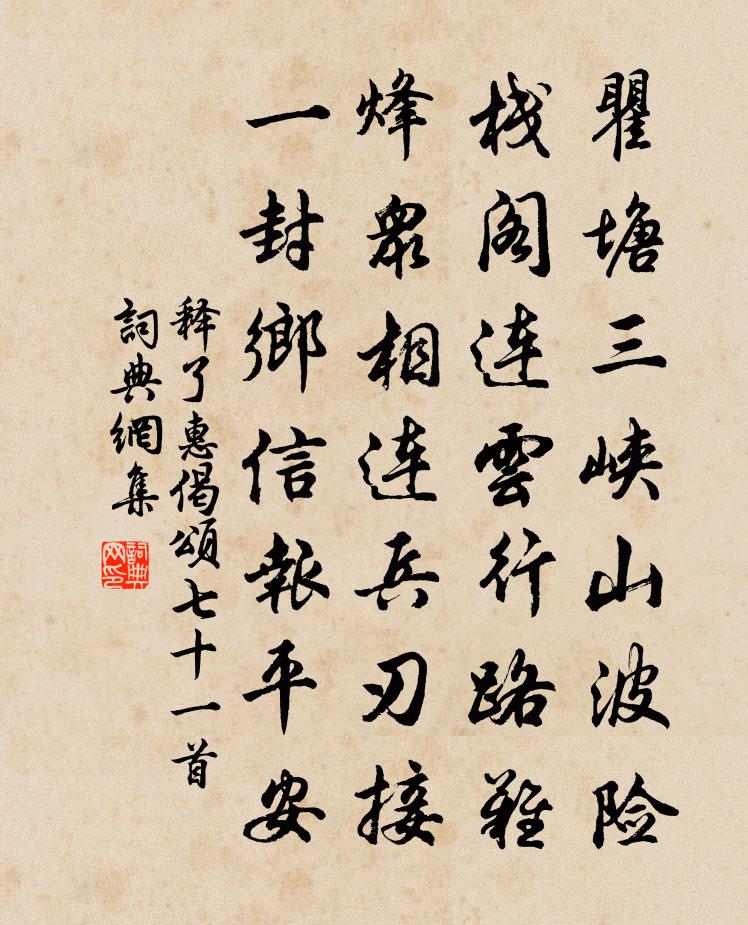 瞿塘三峡山波险
栈阁连雲行路難
烽眾相连兵刃接
一封鄉信報平安
释了惠偈頌七十一首
詞典網集
詞典网印